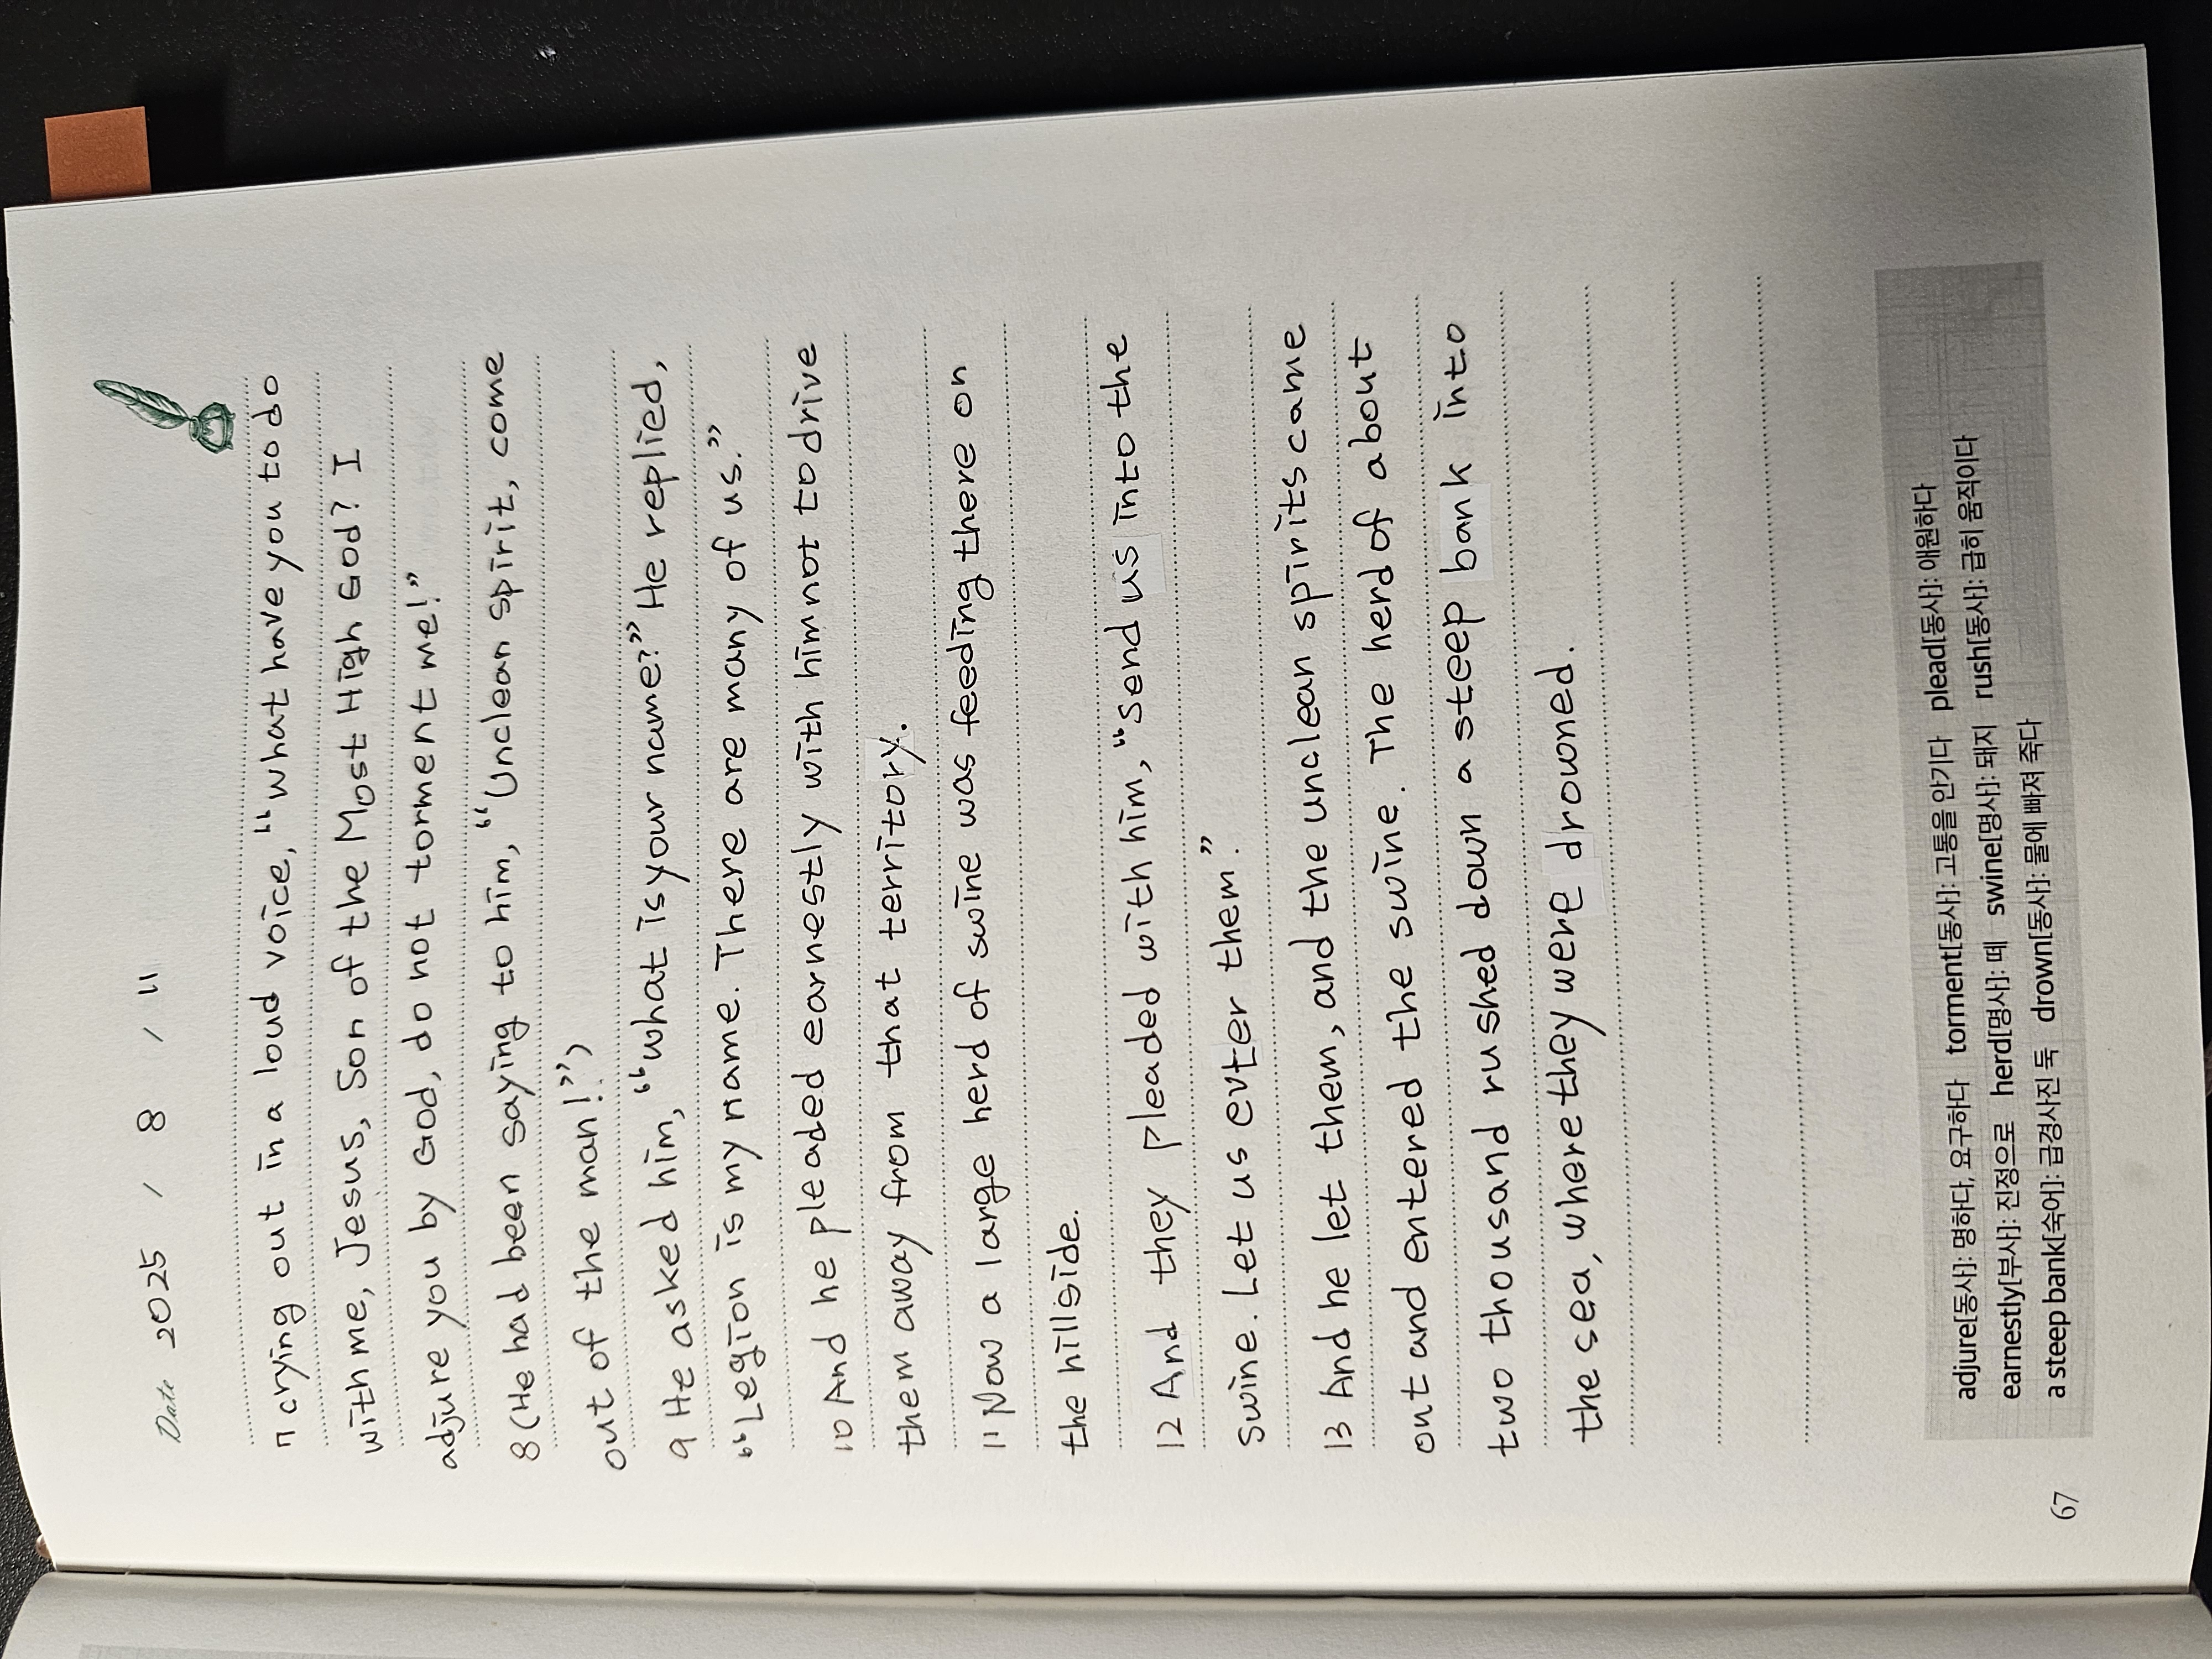 Date 2025 / 8 / 11
7 crying out in a loud voice, "what have you to do
with me, Jesus, Son of the Most High God? I
adjure you by God, do not torment me!"
8 (He had been saying to him, "Unclean spirit, come
out of the man!")
9 He asked him, "what is your name?" He replied,
"Legion is my name. There are many of us."
10 And he pleaded earnestly with him not to drive
them away from that territory.
11 Now a large herd of swine was feeding there on
the hillside.
12 And they pleaded with him, "send us into the
swine. Let us enter them".
13 And he let them, and the unclean spirits came
out and entered the swine. The herd of about
two thousand rushed down a steep bank into
the sea, where they were drowned.
adjure[동사]: 명하다, 요구하다 torment[동사]: 고통을 안기다 plead[동사]: 애원하다
earnestly[부사]: 진정으로 herd[명사]: 떼 swine[명사]: 돼지 rush[동사]: 급히 움직이다
a steep bank[숙어]: 급경사진 둑 drown[동사]: 물에 빠져 죽다
67